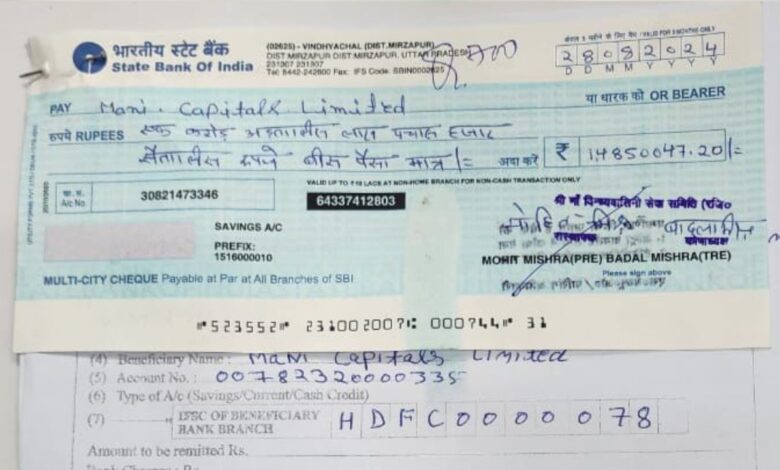 भारतीय स्टेट बैंक
State Bank Of India
(02625) - VINDHYACHAL (DIST.MIRZAPUR)
DIST MIRZAPUR DIST.MIRZAPUR, UTTAR PRADESH
231307 231307
Tel: 8442-242600 Fax: IFS Code: SBIN0002625
VALID FOR 3 MONTHS ONLY
28082024
D D M M Y Y Y Y
PAY Mani Capitals Limited या धारक को OR BEARER
रुपये RUPEES एक करोड़ अड़तालीस लाख पचास हजार
सैंतालीस रुपये बीस पैसा मात्र/= अदा करें ₹ 14850047.20/=
VALID UP TO ₹10 LACS AT NON-HOME BRANCH FOR NON-CASH TRANSACTION ONLY
खा. सं. A/c No. 30821473346
64337412803
श्री माँ विन्ध्यवासिनी सेवा समिति (रजि०
SAVINGS A/C
PREFIX:
1516000010
कोषाध्यक्ष
MOHIT MISHRA(PRE) BADAL MISHRA(TRE)
Please sign above
MULTI-CITY CHEQUE Payable at Par at All Branches of SBI
⑈523552⑈ 231002007⑆ 000744⑈ 31
(4) Beneficiary Name : Mani Capitals Limited
(5) Account No. : 00782320000335
(6) Type of A/c (Savings/Current/Cash Credit)
(7) IFSC OF BENEFICIARY BANK BRANCH HDFC0000078
Amount to be remitted Rs.